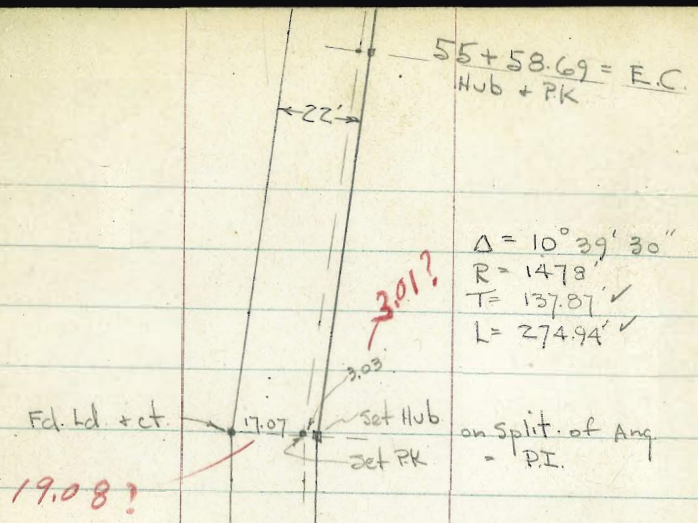 55+58.69 = E.C.
Hub + P.K
22'
Δ = 10° 39' 30"
R = 1478'
T = 137.87' ✓
L = 274.94' ✓
3.01?
3.03
Fd. Ld. + ct.
17.07
Set Hub
on Split. of Ang
Set P.K
= P.I.
19.08?